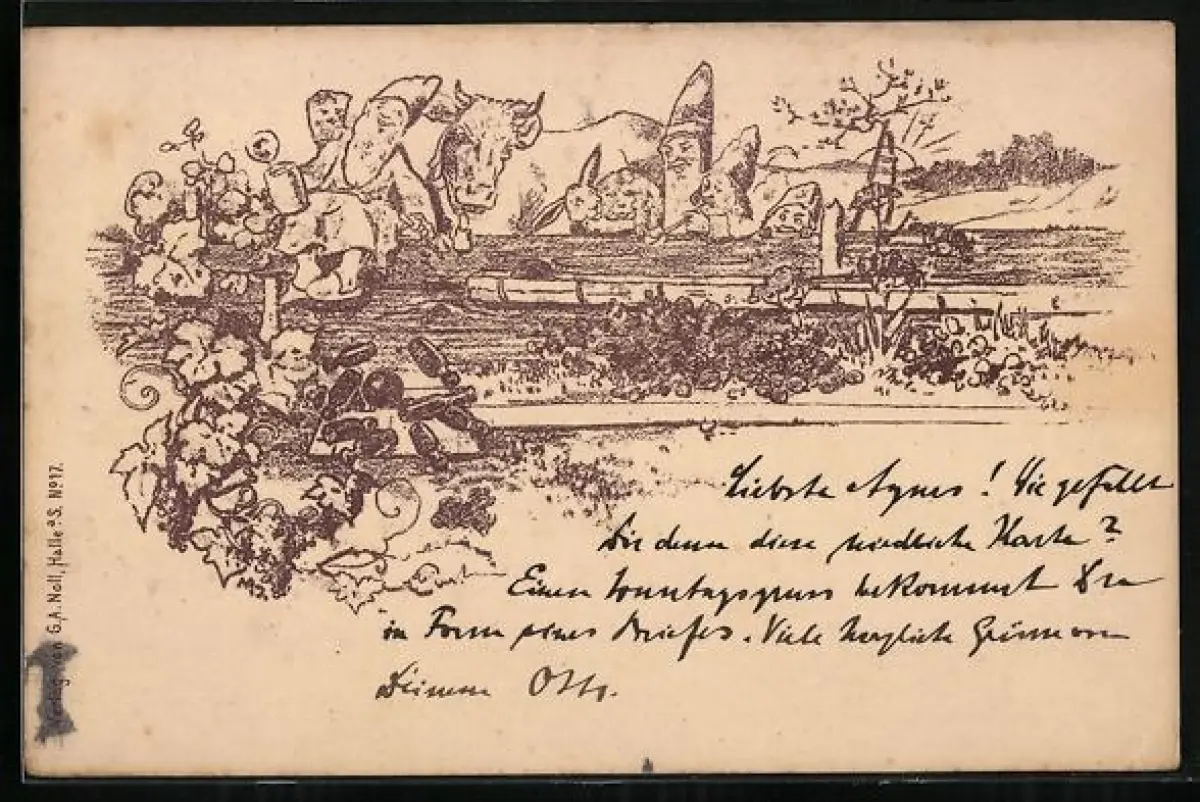 Liebste Agnes! Wie gefällt
Dir denn diese niedliche Karte?
Einen Sonntagsgruss bekommst Du
in Form eines Briefes. Viele herzliche Grüsse von
Deinem Otto.
Verlag von G.A. Noll, Halle a. S. No 17.